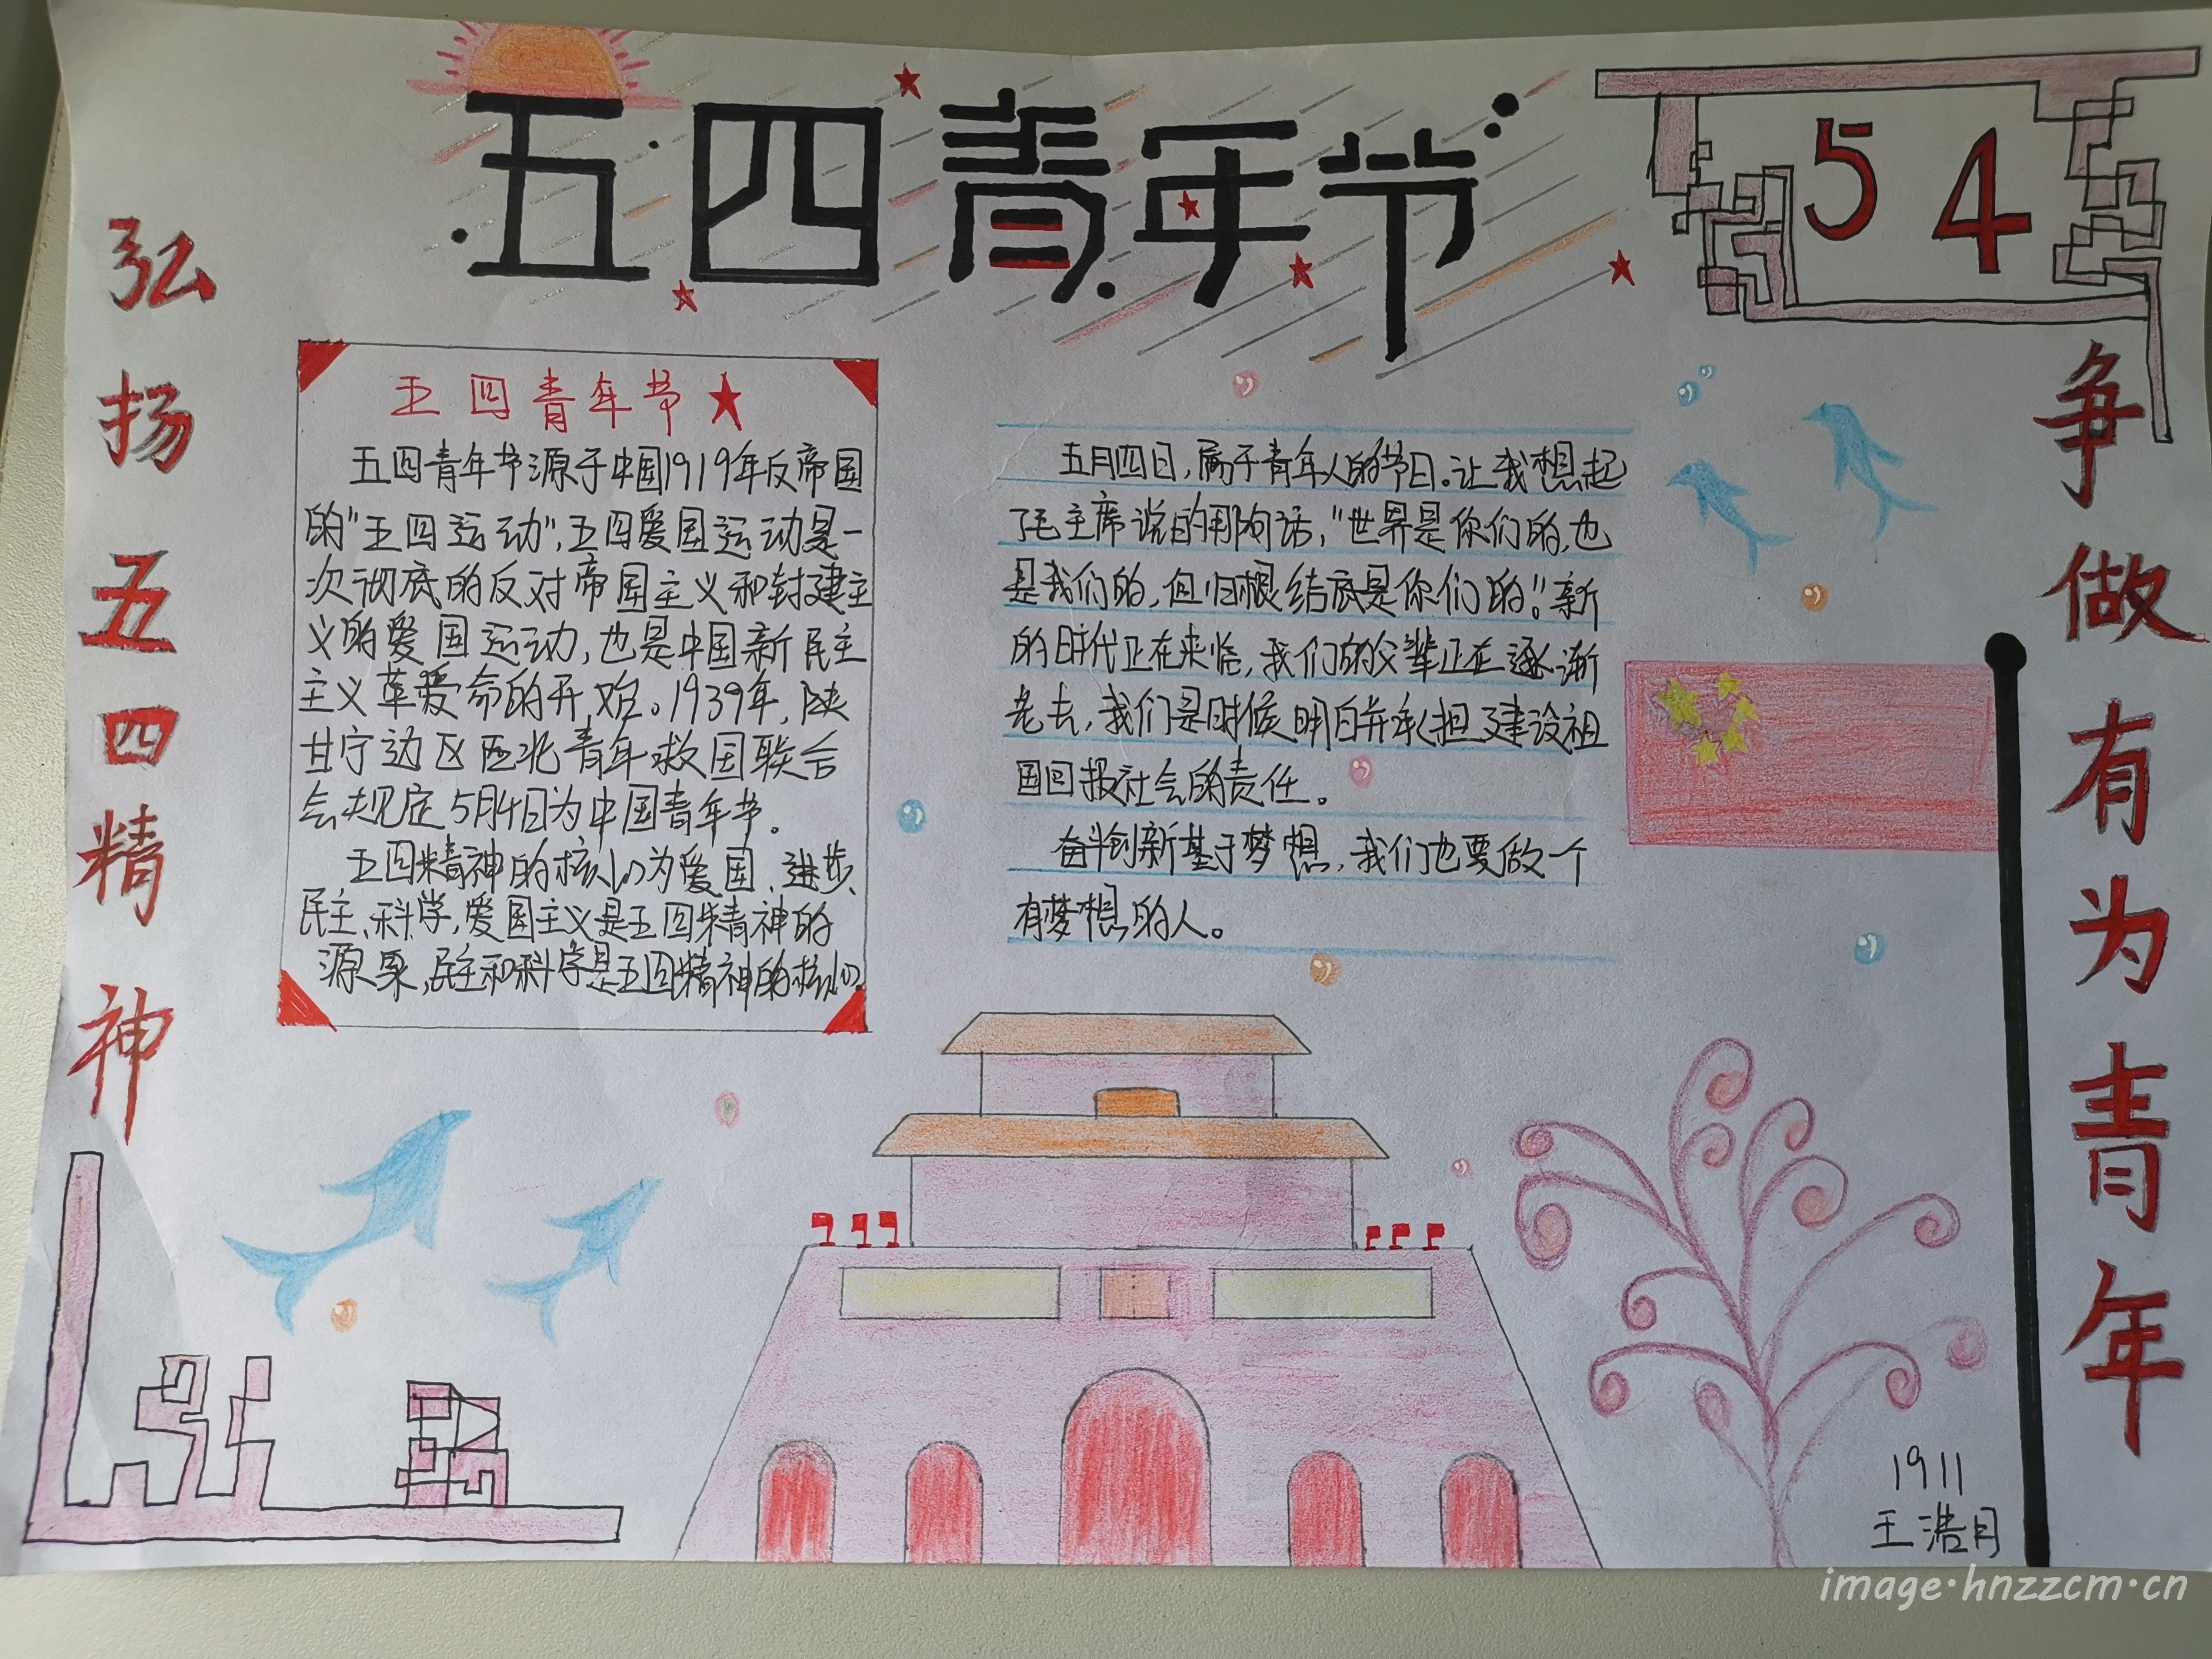 五四青年节
54
弘扬五四精神
五四青年节
五四青年节源于中国1919年反帝国
的"五四运动",五四爱国运动是一
次彻底的反对帝国主义和封建主
义的爱国运动,也是中国新民主
主义革命的开始。1939年,陕
甘宁边区西北青年救国联合
会规定5月4日为中国青年节。
五四精神的核心为爱国、进步、
民主、科学,爱国主义是五四精神的
源泉,民主和科学是五四精神的核心。
五月四日,属于青年人的节日。让我想起
了毛主席说的那句话,"世界是你们的,也
是我们的,但归根结底是你们的。"新
的时代正在来临,我们的父辈正在逐渐
老去,我们是时候明白并承担了建设祖
国回报社会的责任。
奋斗创新基于梦想,我们也要做一个
有梦想的人。
争做有为青年
1911
王浩月
image·hnzzcm·cn